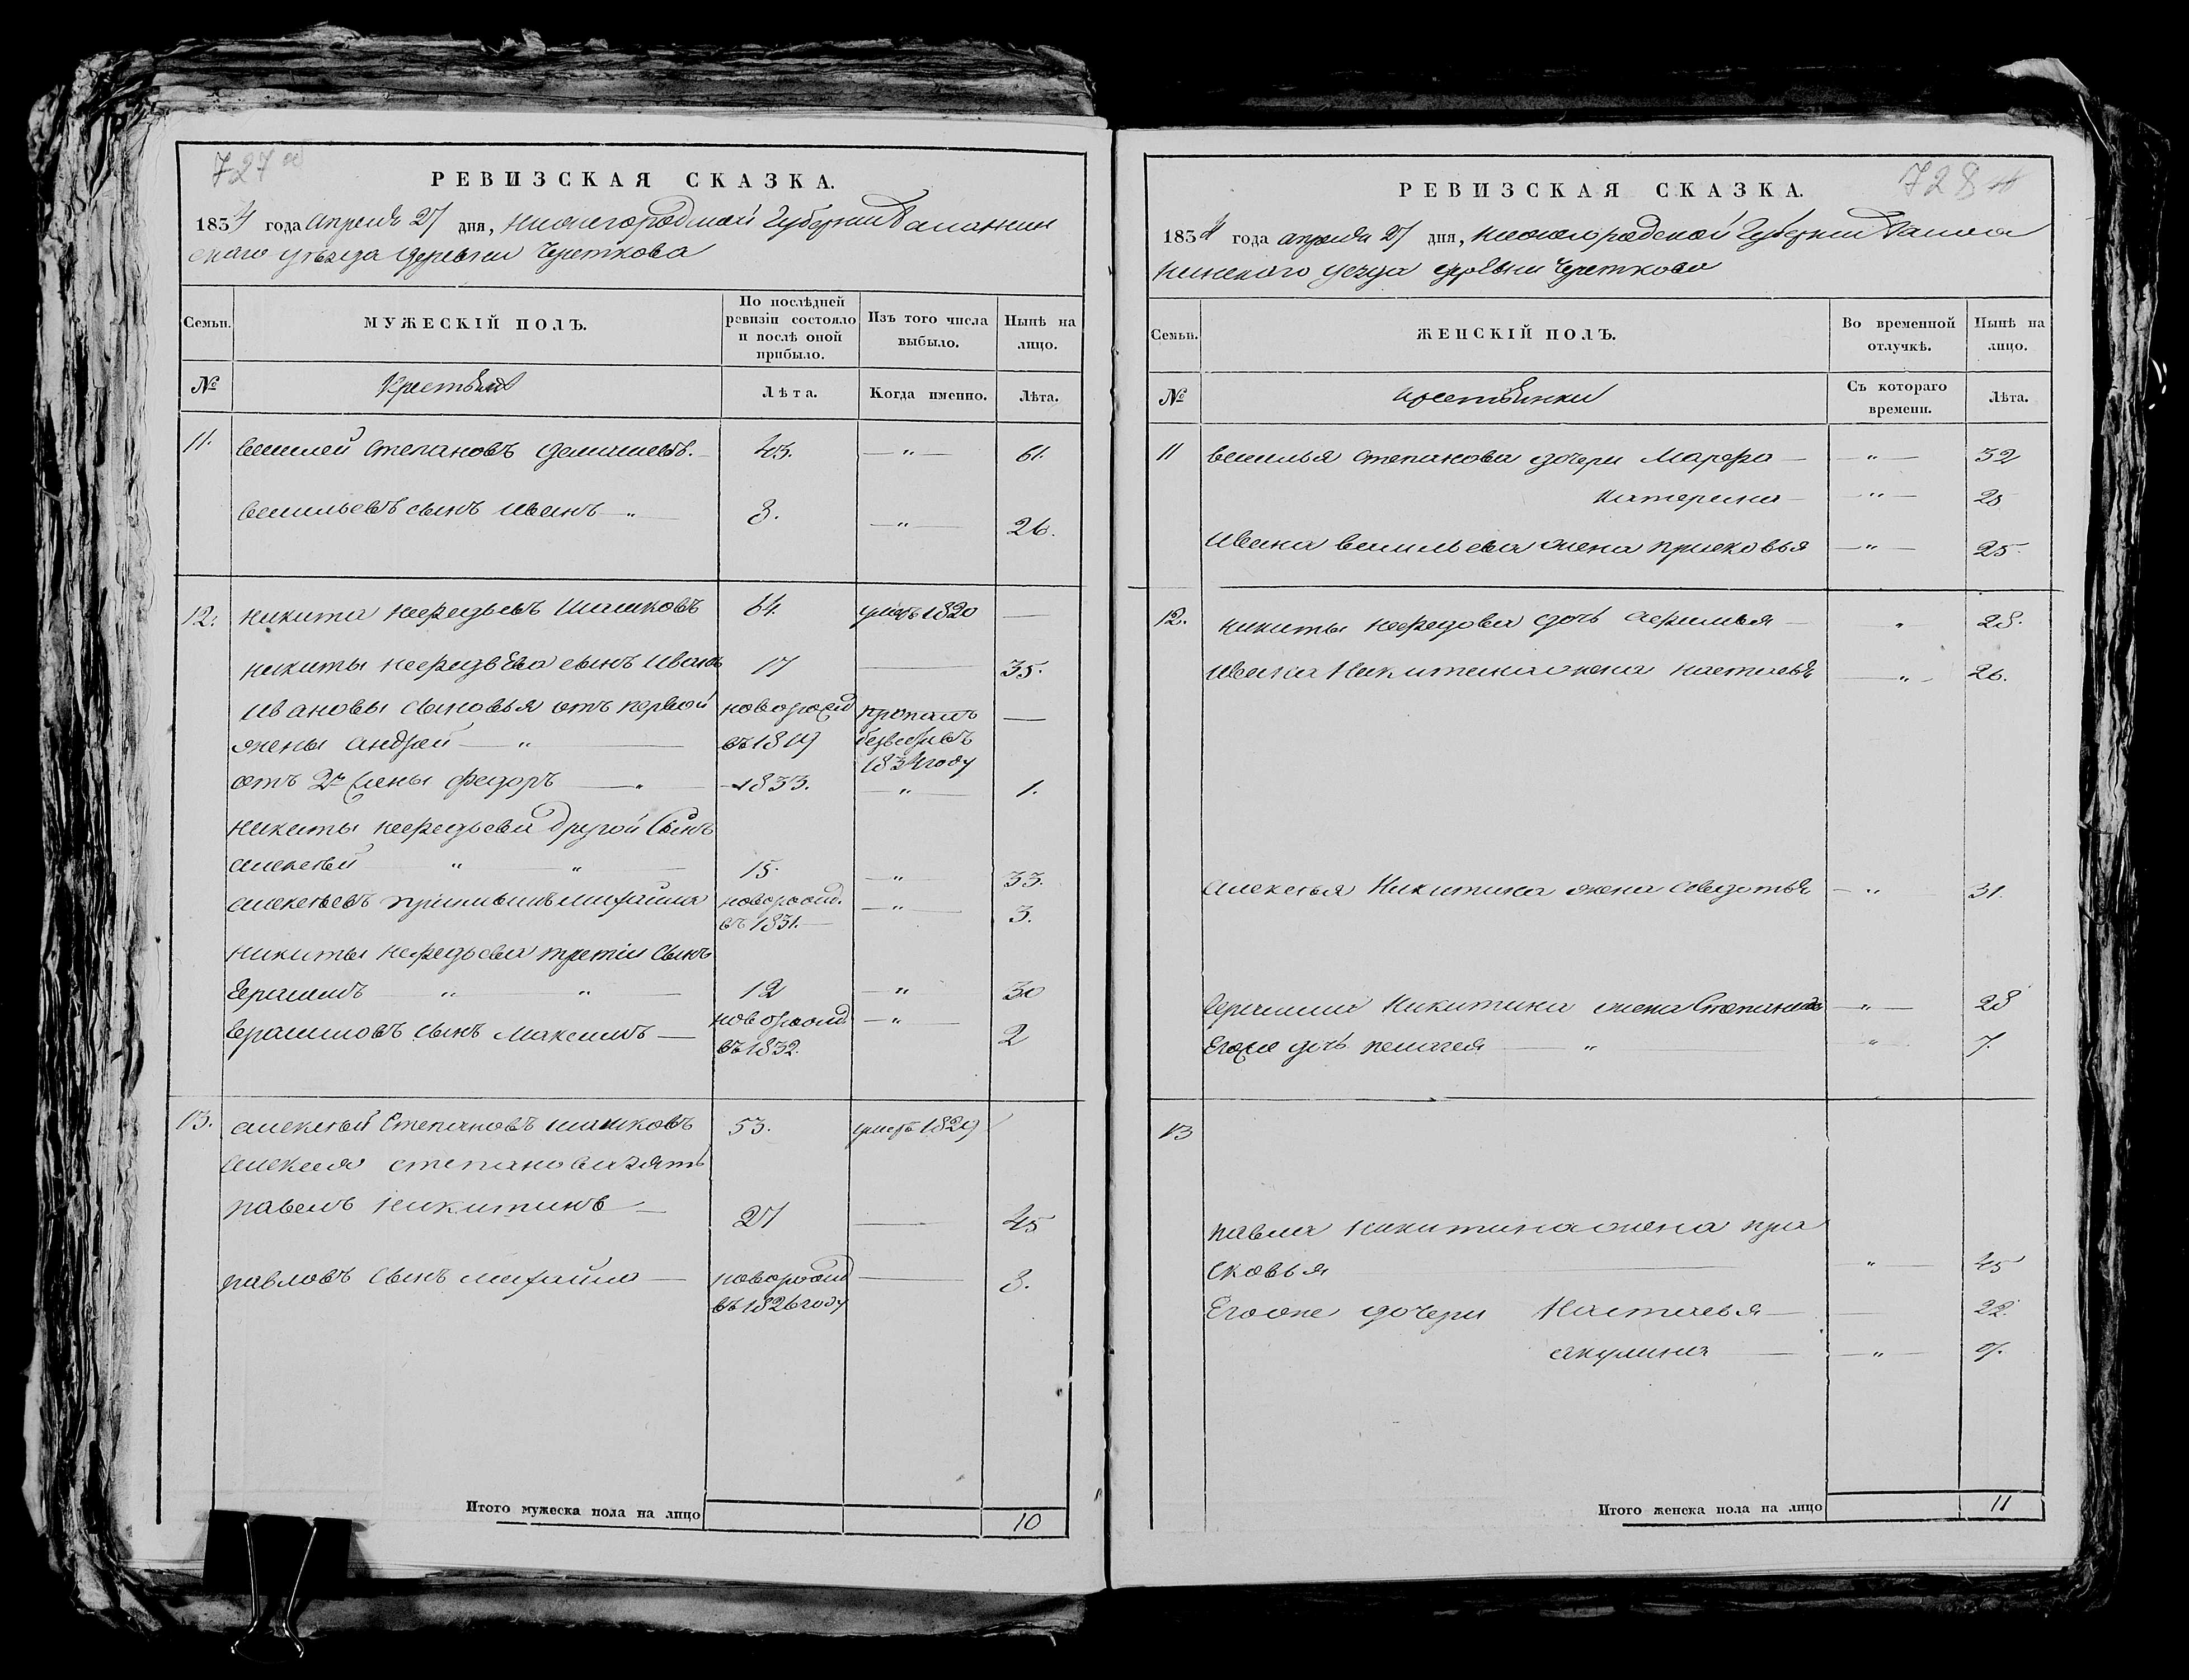 727 об
РЕВИЗСКАЯ СКАЗКА.
1834 года апреля 27 дня, Нижегородской Губернии Балахнин
скаго уъезда деревни Череткова
Семьи.
МУЖЕСКІЙ ПОЛЪ.
По послѣдней ревизіи состояло и послѣ оной прибыло.
Изъ того числа выбыло.
Нынѣ на лицо.
№
Крестьяне
Лѣта.
Когда именно.
Лѣта.
11. Василей Степановъ 43. — " — 61.
Васильевъ сынъ Иванъ " 8. — " — 26.
12. Никита Нефедьевъ Шашковъ 64. умеръ 1820 —
Никиты Нефедьева сынъ Иванъ 17 — 35.
Ивановы сыновья отъ первой новорожд пропалъ —
жены Андрей — " — въ 1819 безвести въ
1834 году
отъ 2й жены Федоръ — " — 1833. — " — 1.
Никиты Нефедьева другой сынъ
Алексѣй " " — 15. — " — 33.
Алексѣевъ Михайла новорожд. — " — 3.
въ 1831. —
Никиты Нефедьева третій сынъ
Ерасимъ — " " — 12 — " — 30
Ерасимовъ сынъ Максимъ — новорожд — " — 2
въ 1832.
13. Алексѣй Степановъ Шашковъ 53. умеръ 1829
Алексея Степанова зять
Павелъ Никитинъ — 27 — 45
Павловъ сынъ Михайло — новорожд — 8.
въ 1826 году
Итого мужеска пола на лицо 10
728
РЕВИЗСКАЯ СКАЗКА.
1834 года апреля 27 дня, Нижегородской Губернии Балах
нинского уезда деревни Череткова
Семьи.
ЖЕНСКІЙ ПОЛЪ.
Во временной отлучкѣ.
Нынѣ на лицо.
№
Крестьянки
Съ котораго времени.
Лѣта.
11 Василья Степанова дочери Марфа — — " — 32
Катерина — — " — 28
Ивана Васильева жена Прасковья — " — 25.
12. Никиты Нефедова дочь Афимья — " 28.
Ивана Никитина жена Настасья — " — 26.
Алексѣя Никитина жена Авдотья — " 31.
Ерасима Никитина жена Степанида — " — 28
Егоже дочь Пелагея — " — " 7.
13
Павла Никитина жена Пра
сковья — " 45
Егоже дочери Настасья — — 22.
Акулина — — " — 7.
Итого женска пола на лицо 11